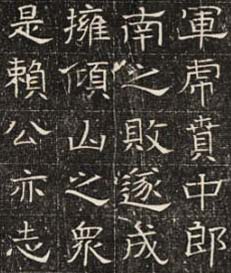 軍虎賁中郎
南之敗遂成
擁傾山之衆
是賴公亦志